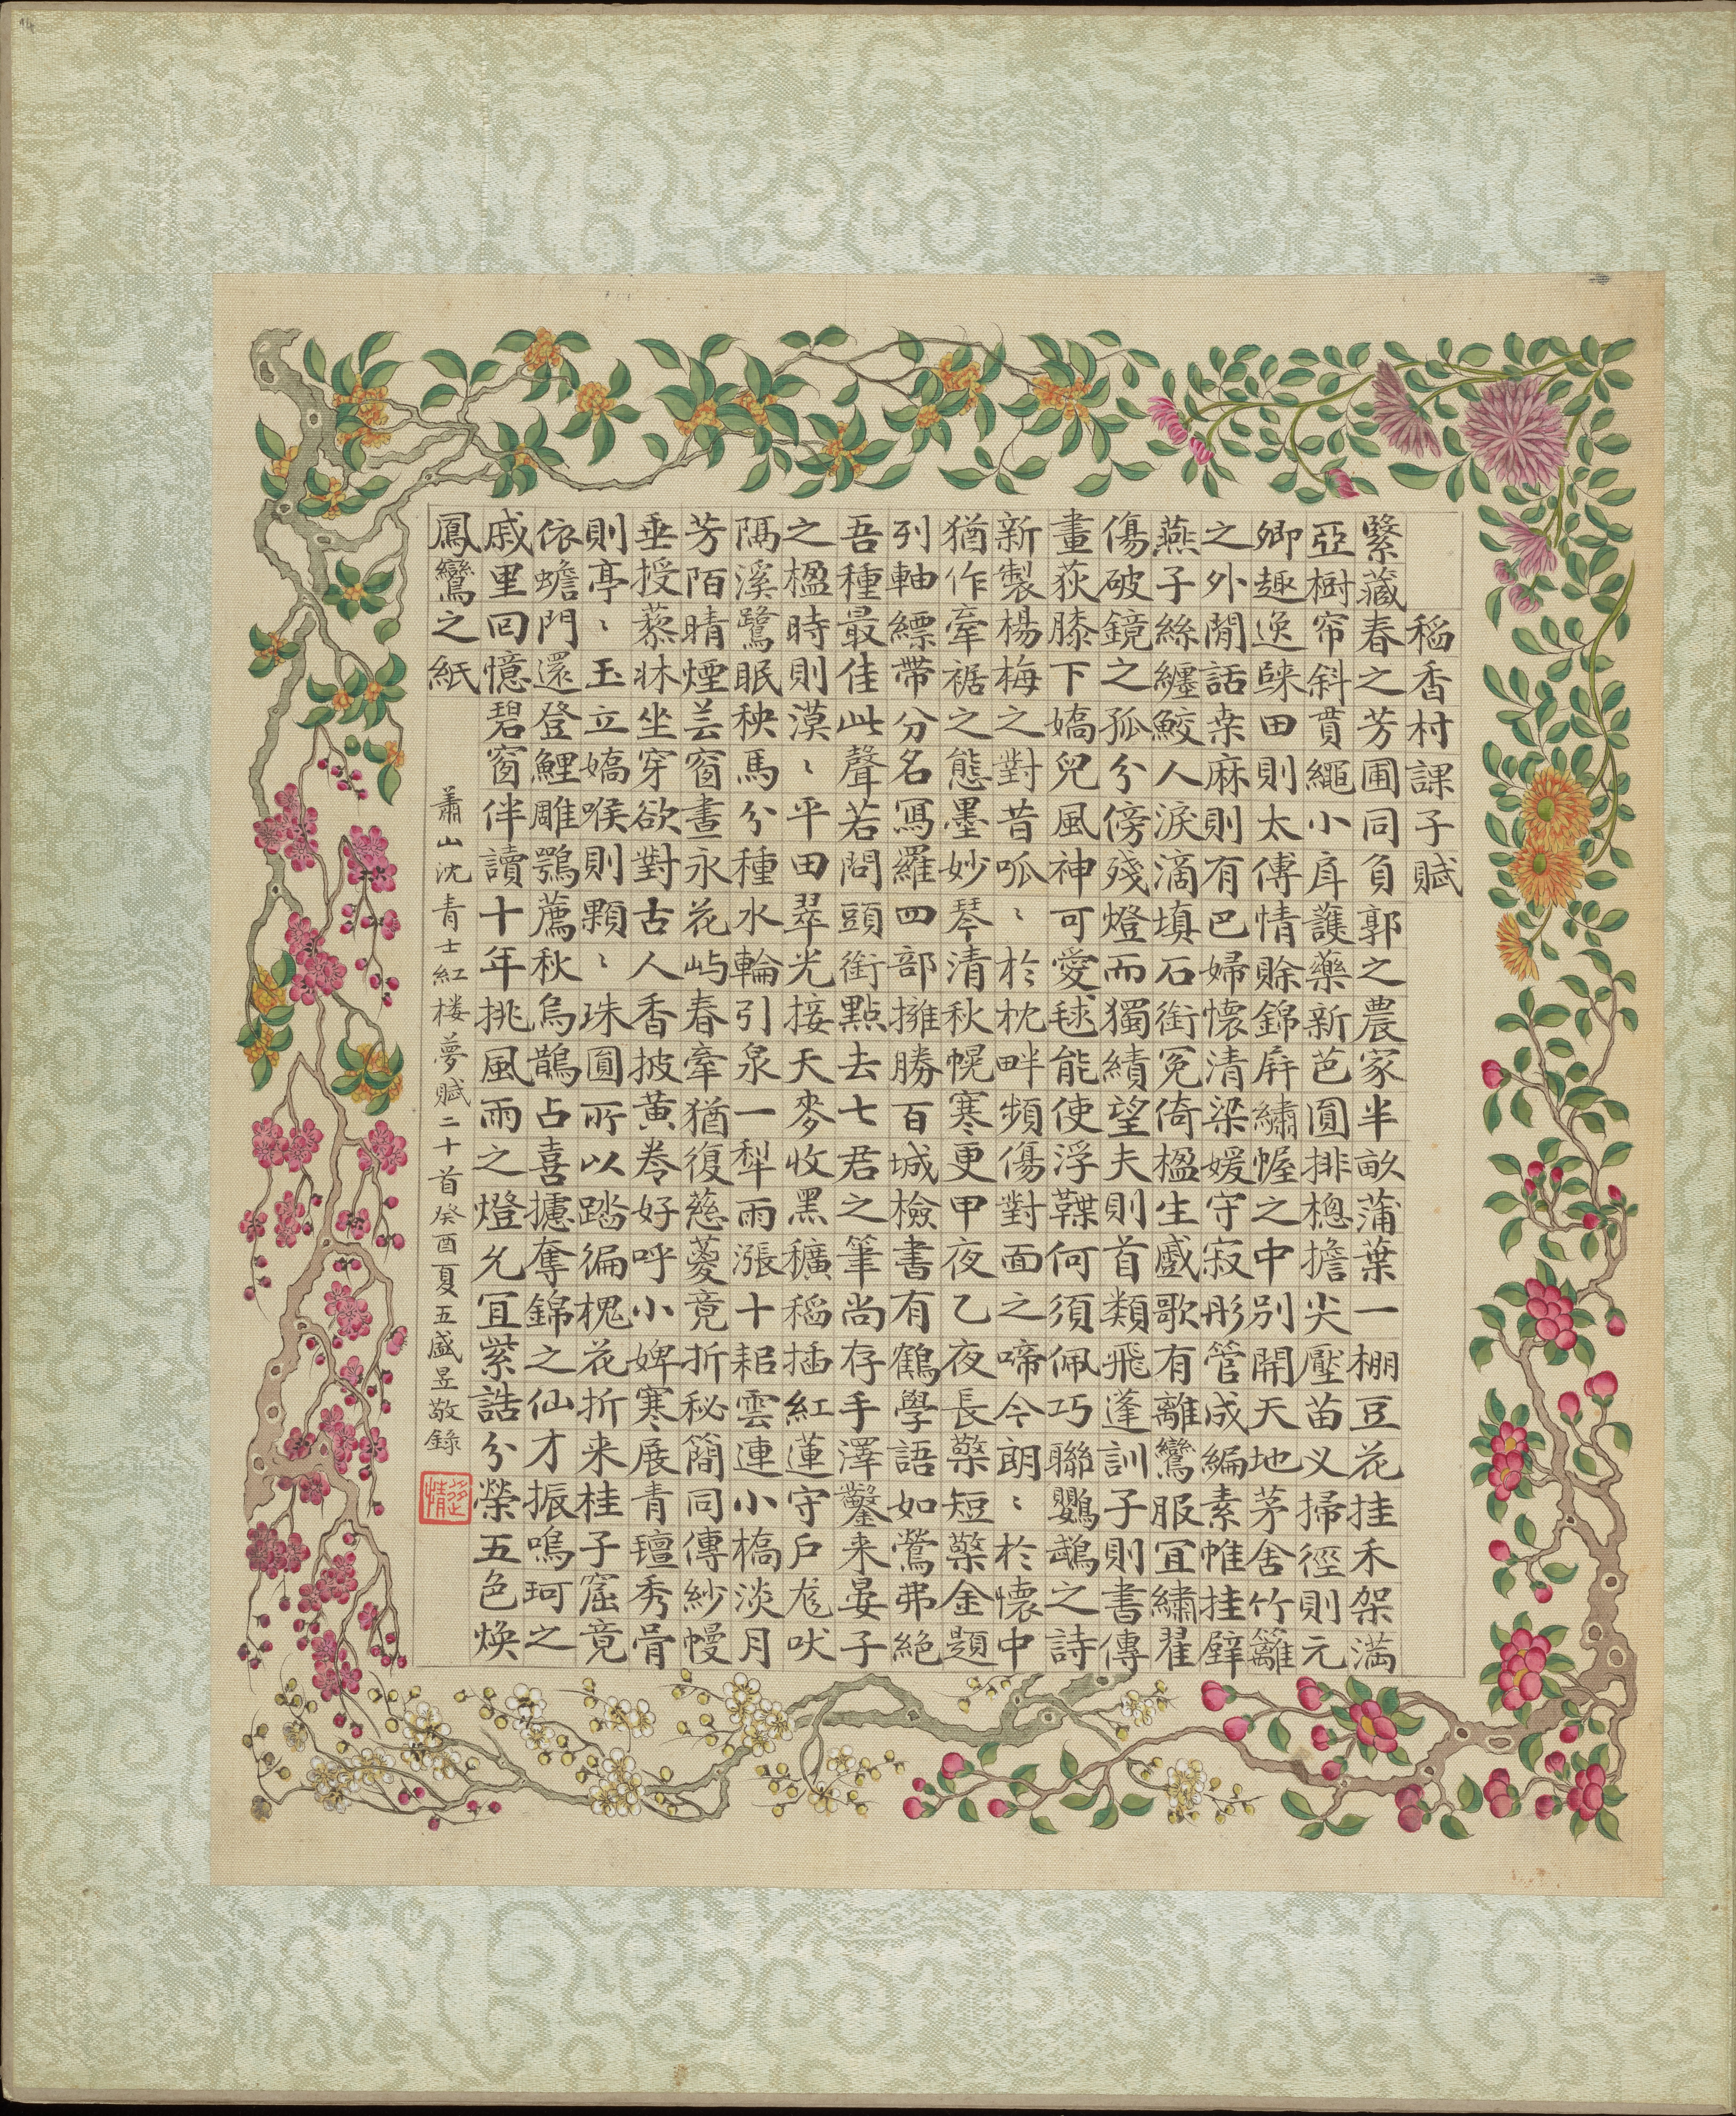 稻香村課子賦
繄藏春之芳圃同負郭之農家半畝蒲葉一棚豆花挂禾架滿
亞樹帘斜貰繩小戽護藥新芭圓排樬擔尖壓苗义掃徑則元
卿趣逸睞田則太傅情賒錦屏繡幄之中別開天地茅舍竹籬
之外閒話桒麻則有巴婦懷清梁媛守寂彤管成編素帷挂壁
燕子絲纏鮫人淚滴填石銜冤倚楹生慼歌有離鸞服宜繡翟
傷破鏡之孤分傍殘燈而獨績望夫則首類飛蓬訓子則書傳
畫荻膝下嬌兒風神可愛毬能使浮鞢何須佩巧聯鸚鵡之詩
新製楊梅之對昔呱〻於枕畔頻傷對面之啼今朗〻於懷中
猶作牽裾之態墨妙琴清秋幌寒更甲夜乙夜長檠短檠金題
列軸縹帶分名寫羅四部擁勝百城檢書有鶴學語如鶯弗絕
吾種最佳此聲若問頭銜點去七君之筆尚存手澤鑿來晏子
之楹時則漠〻平田翠光接天麥收黑穬稻插紅蓮守戶尨吠
隔溪鷺眠秧馬分種水輪引泉一犁雨漲十耜雲連小橋淡月
芳陌晴煙芸窗晝永花屿春牽猶復慈蔆竟折秘簡同傳紗幔
垂授藜牀坐穿欲對古人香披黃卷好呼小婢寒展青氊秀骨
則亭〻玉立嬌喉則顆〻珠圓所以踏徧槐花折来桂子窟竟
依蟾門還登鯉雕鶚薦秋烏鵲占喜攄奪錦之仙才振鳴珂之
戚里回憶碧窗伴讀十年挑風雨之燈允宜紫誥分榮五色煥
鳳鸞之紙
蕭山沈青士紅樓夢賦二十首癸酉夏五盛昱敬錄